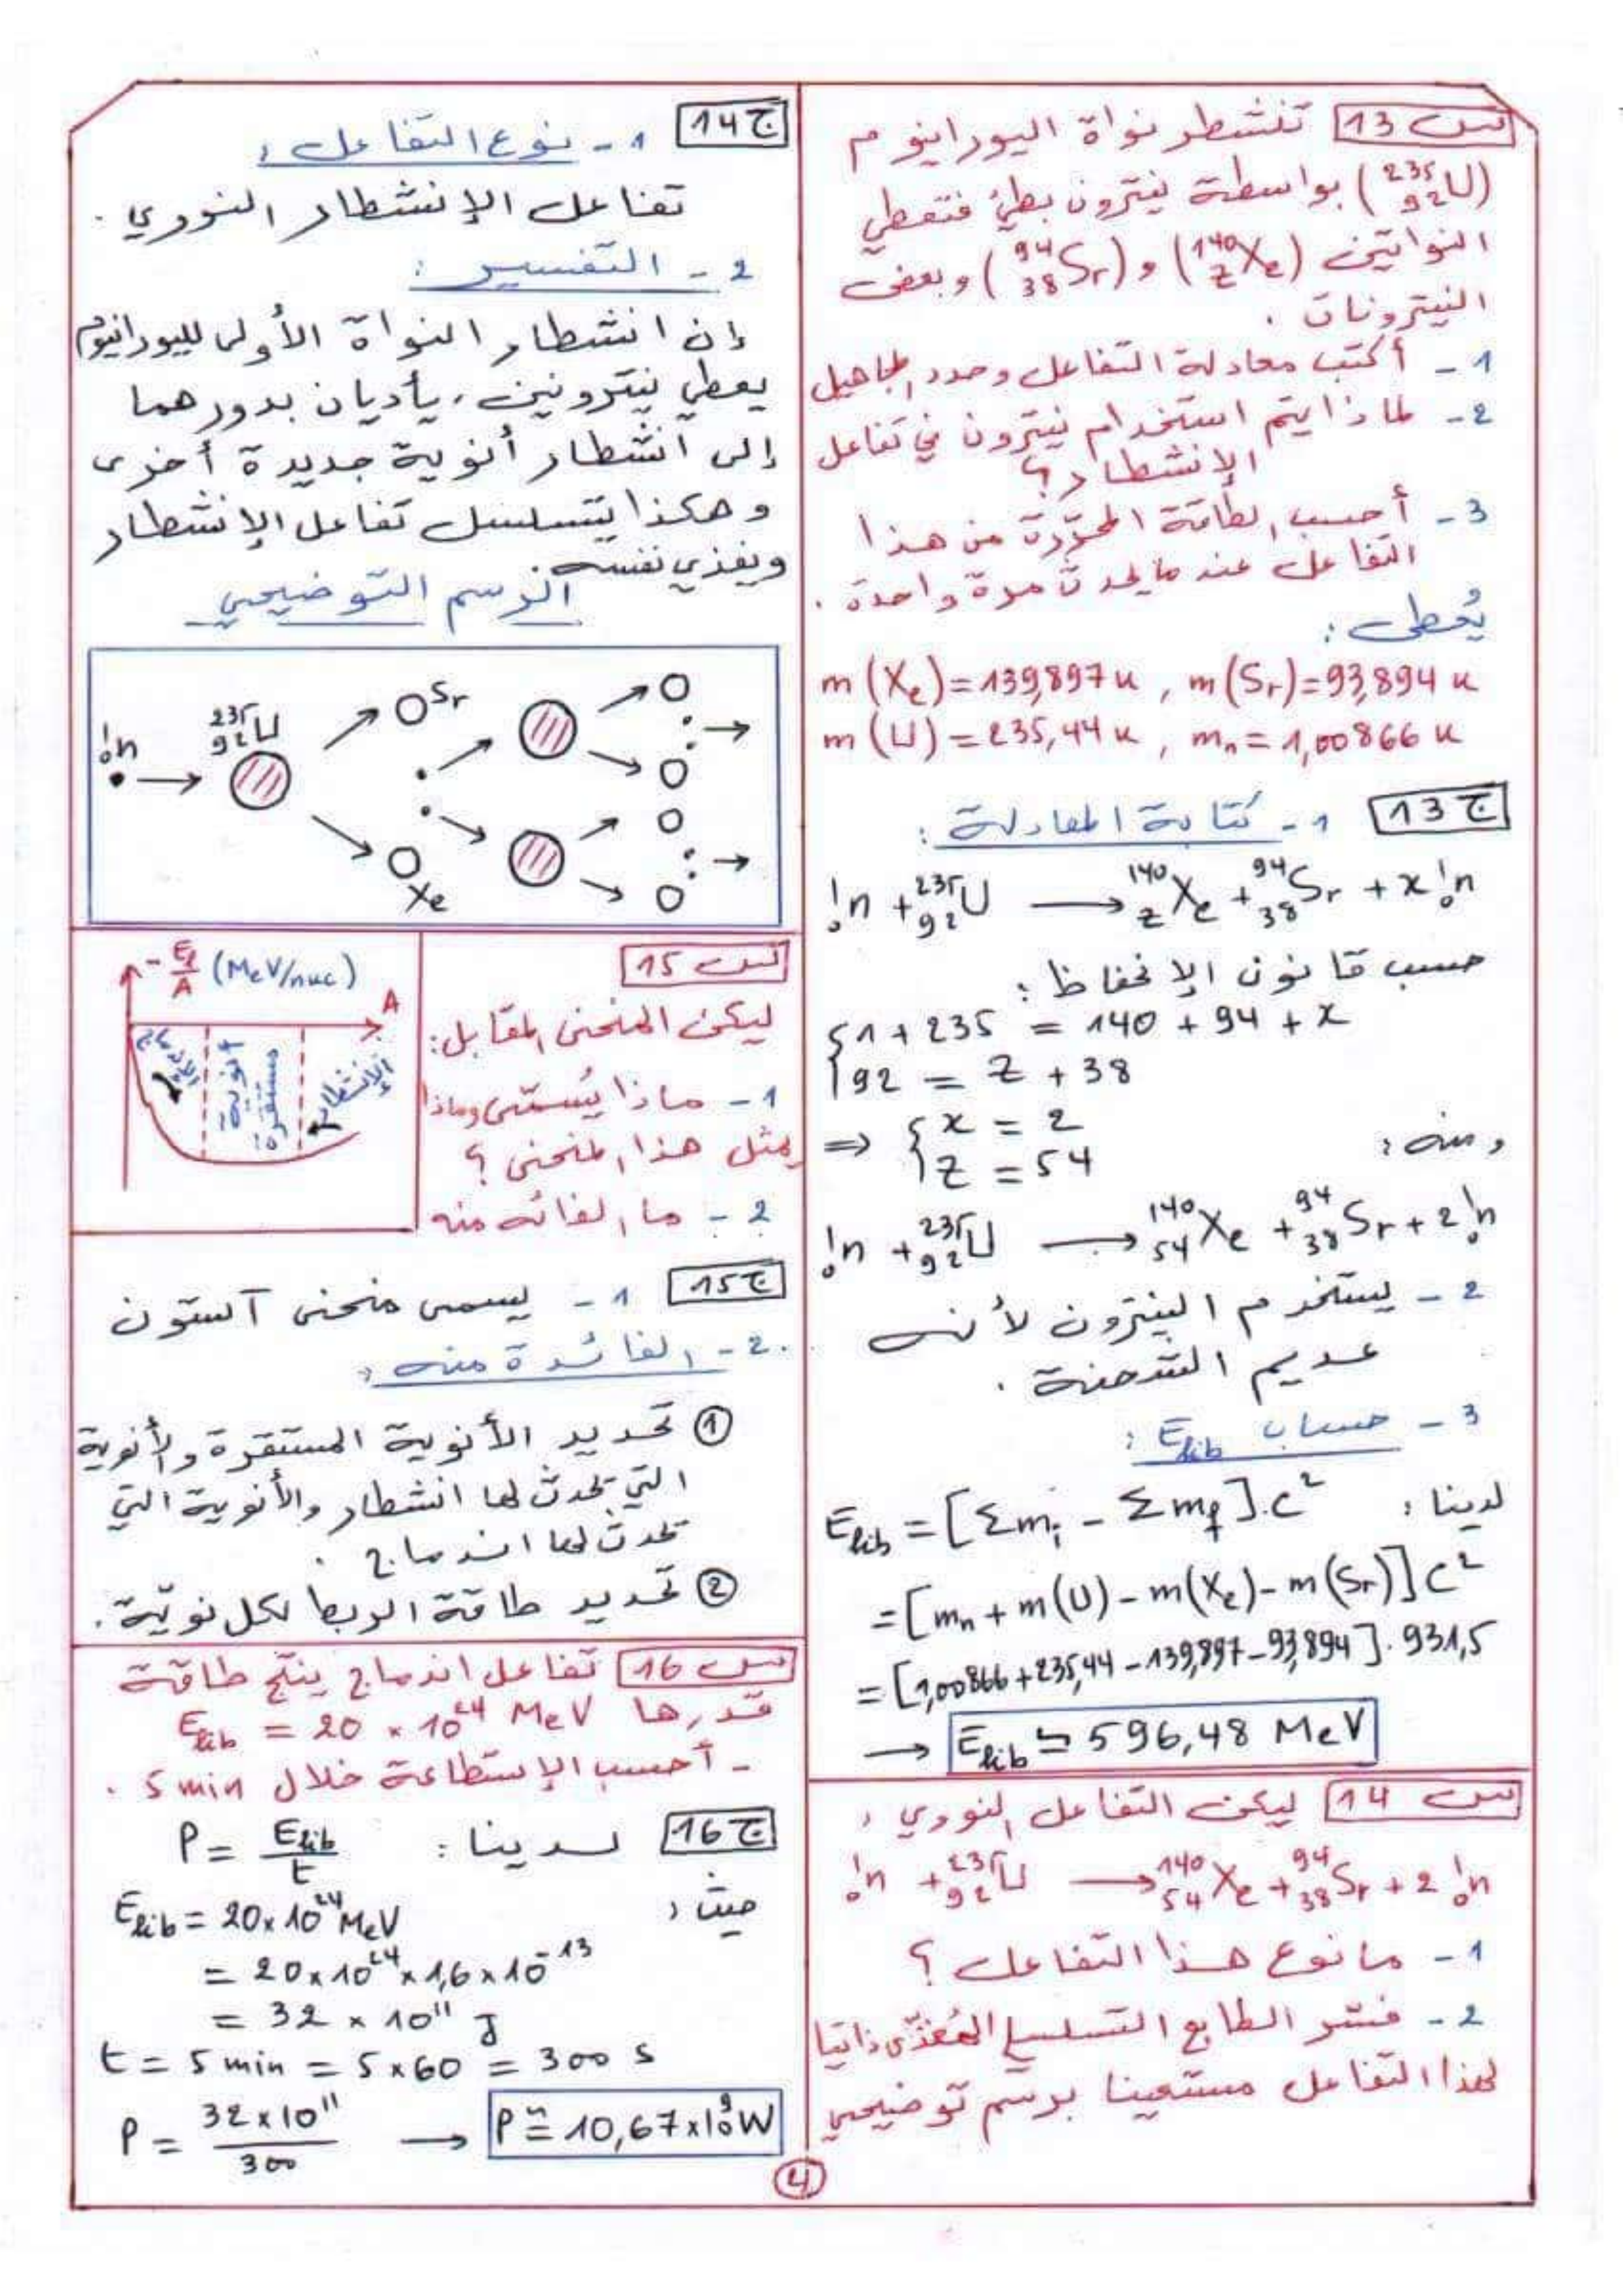 س 13 تنشطر نواة اليورانيوم
(²³⁵₉₂U) بواسطة نيترون بطيء فتعطي
النواتين (¹⁴⁰_ZXe) و (⁹⁴₃₈Sr) وبعض
النيترونات .
1 - أكتب معادلة التفاعل وحدد المجاهيل
2 - لماذا يتم استخدام نيترون في تفاعل
الإنشطار ؟
3 - أحسب الطاقة المحرّرة من هذا
التفاعل عندما يحدث مرة واحدة .
يُعطى :
m (Xe) = 139,897 u , m (Sr) = 93,894 u
m (U) = 235,44 u , mn = 1,00866 u
ج 13 1 - كتابة المعادلة :
¹₀n + ²³⁵₉₂U → ¹⁴⁰_ZXe + ⁹⁴₃₈Sr + x ¹₀n
حسب قانون الإنحفاظ :
{ 1 + 235 = 140 + 94 + x
92 = Z + 38
ومنه :
⇒ { x = 2
Z = 54
¹₀n + ²³⁵₉₂U → ¹⁴⁰₅₄Xe + ⁹⁴₃₈Sr + 2 ¹₀n
2 - يستخدم النيترون لأنه
عديم الشحنة .
3 - حساب Elib :
لدينا : Elib = [Σmi - Σmf].C²
= [mn + m(U) - m(Xe) - m(Sr)] C²
= [1,00866 + 235,44 - 139,897 - 93,894] . 931,5
→ Elib ≃ 596,48 MeV
س 14 ليكن التفاعل النووي :
¹₀n + ²³⁵₉₂U → ¹⁴⁰₅₄Xe + ⁹⁴₃₈Sr + 2 ¹₀n
1 - ما نوع هذا التفاعل ؟
2 - فسّر الطابع التسلسلي المُغذّى ذاتيا
لهذا التفاعل مستعينا برسم توضيحي
ج 14 1 - نوع التفاعل :
تفاعل الإنشطار النووي .
2 - التفسير :
إن انشطار النواة الأولى لليورانيوم
يعطي نيترونين ، يأديان بدورهما
إلى انشطار أنوية جديدة أخرى
وهكذا يتسلسل تفاعل الإنشطار
ويغذي نفسه .
الرسم التوضيحي
¹₀n
²³⁵₉₂U
Sr
Xe
س 15
ليكن المنحنى المقابل :
1 - ماذا يُسمّى وماذا
يمثل هذا المنحنى ؟
2 - ما الفائدة منه
- El/A (MeV/nuc)
A
الإندماج
أنوية
مستقرة
الإنشطار
ج 15 1 - يسمى منحنى آستون
2 - الفائدة منه :
① تحديد الأنوية المستقرة والأنوية
التي يحدث لها انشطار والأنوية التي
يحدث لها اندماج .
② تحديد طاقة الربط لكل نويّة .
س 16 تفاعل اندماج ينتج طاقة
قدرها Elib = 20 × 10²⁴ MeV
- أحسب الإستطاعة خلال 5 min .
ج 16 لدينا : P = Elib/t
حيث :
Elib = 20 × 10²⁴ MeV
= 20 × 10²⁴ × 1,6 × 10⁻¹³
= 32 × 10¹¹ J
t = 5 min = 5 × 60 = 300 s
P = 32 × 10¹¹/300 → P ≃ 10,67 × 10⁹ W
4